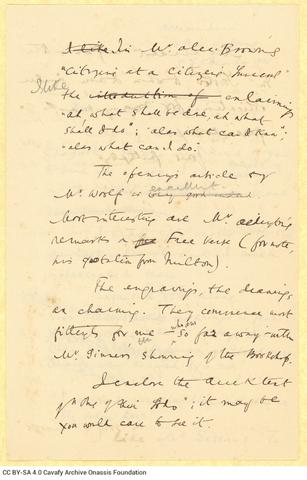 I like In Mr. Alec Brown's
"Citizens at a Citizen's Funeral"
I like
the introduction of exclaiming
"ah, what shall be done, ah what
shall I do"; "alas what can I
"alas what can I do".
The opening article by
Mr. Woolf is excellent very good
Most interesting are Mr.
remarks on free Free Verse (for note,
his quotation from Milton).
The engravings, the drawings
are charming. They commence most
fittingly for me whom so far away with
Mr. showing of the Bookshop.
I enclose the Greek text
of "One of their Gods"; it may be
you would care to see it.
CC BY-SA 4.0 Cavafy Archive Onassis Foundation